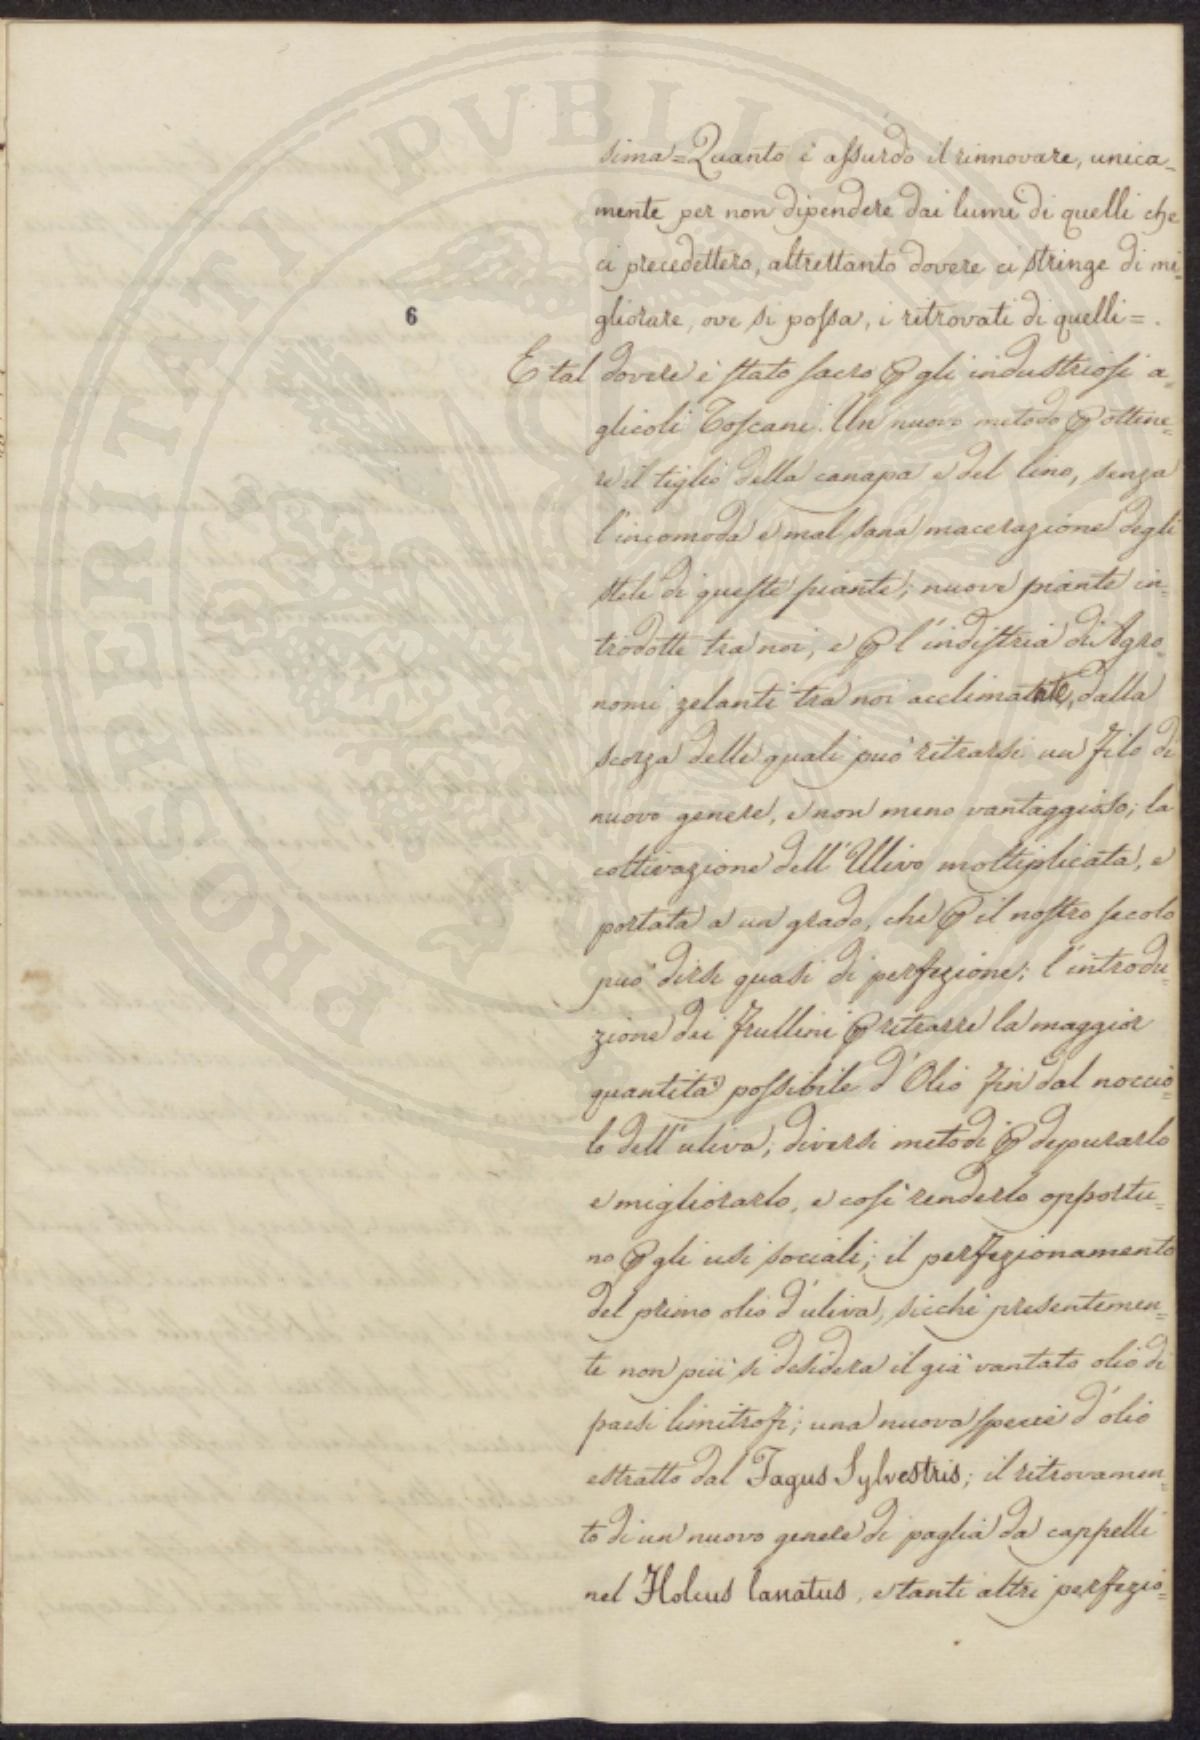 PROSPERITATI PUBLICAE
sima = Quanto è assurdo il rinnovare, unica-
mente per non dipendere dai lumi di quelli che
ci precedettero, altrettanto dovere ci stringe di mi-
6
gliorare, ove si possa, i ritrovati di quelli = .
E tal dovere è stato sacro p gli industriosi a-
glicoli Toscani. Un nuovo metodo p ottene-
re il tiglio della canapa e del lino, senza
l'incomoda e mal sana macerazione degli
steli di queste piante; nuove piante in-
trodotte tra noi, e p l'indistria di Agro-
nomi zelanti tra noi acclimatate, dalla
scorza delle quali può ritrarsi un filo di
nuovo genere, e non meno vantaggioso; la
coltivazione dell'Ulivo moltiplicata, e
portata a un grado, che p il nostro secolo
può dirsi quasi di perfezione; l'introdu-
zione dei frullini p ritrarre la maggior
quantità possibile d'Olio fin dal noccio-
lo dell'uliva; diversi metodi p depurarlo
e migliorarlo, e così renderlo opportu-
no p gli usi sociali; il perfezionamento
del primo olio d'uliva, sicchè presentemen-
te non più si desidera il già vantato olio di
paesi limitrofi; una nuova specie d'olio
estratto dal Fagus Sylvestris; il ritrovamen-
to di un nuovo genere di paglia da cappelli
nel Holcus lanatus, e tanti altri perfezio-